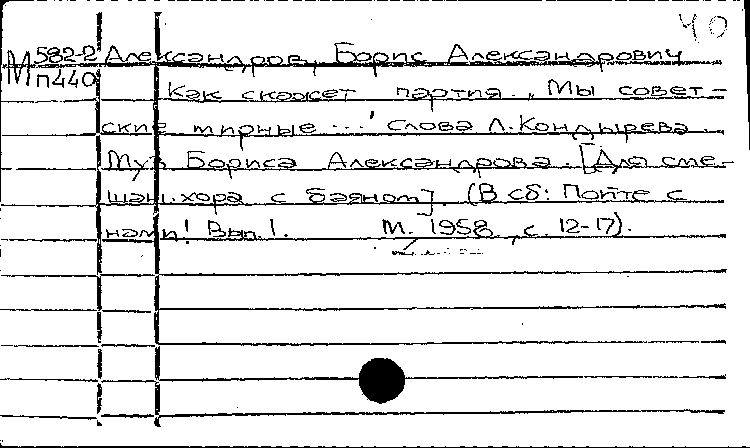 40
М 582-2 Александров, Борис Александрович
п440 Как скажет партия. „Мы совет-
ские мирные ...” слова Л. Кондырева.
Муз Бориса Александрова. [Для сме-
шан. хора с баяном]. (В сб: Пойте с
нами! Вып. 1. М. 1958, с. 12-17).